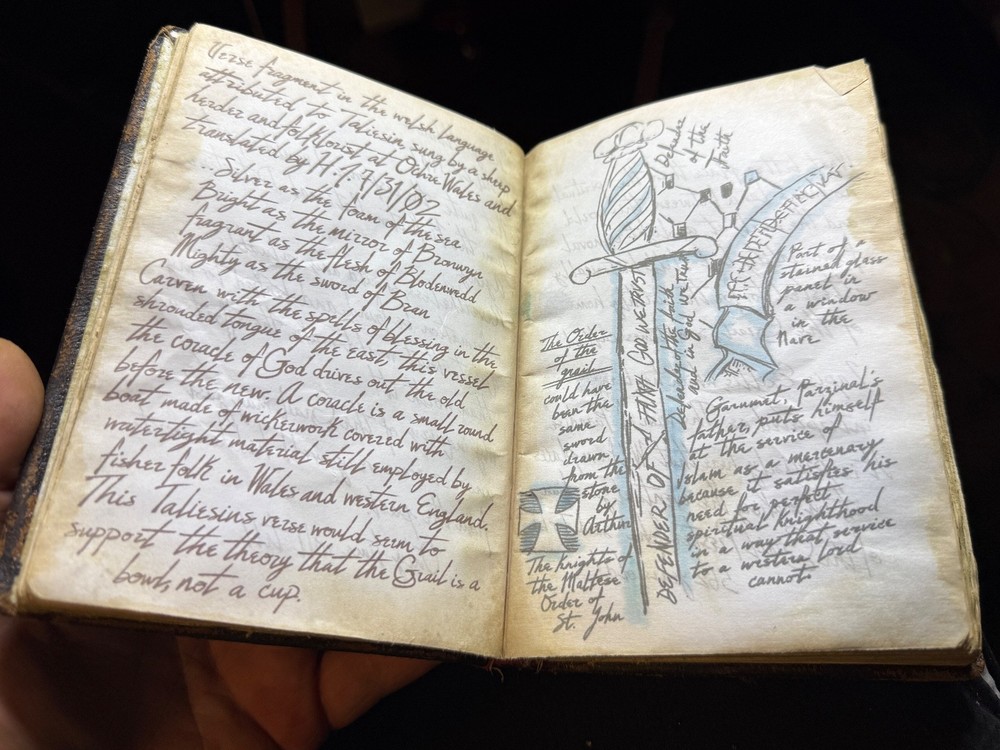 Verse fragment in the welsh language
attributed to Taliesin, sung by a sheep
herder and folklorist at Ochre Wales and
translated by H.J. 7/31/02
Silver as the foam of the sea
Bright as the mirror of Bronwyn
fragrant as the flesh of Blodenwedd
Mighty as the sword of Bran
Carven with the spells of blessing in the
shrouded tongue of the east, this vessel
the coracle of God drives out the old
before the new. A coracle is a small round
boat made of wickerwork covered with
watertight material still employed by
fisher folk in Wales and western England.
This Taliesins verse would seem to
support the theory that the Grail is a
bowl, not a cup.
Defender
of the
Faith
Part of a
stained glass
panel in
a window
in the
Nave
The Order
of the
grail
could have
been the
same
sword
drawn
from the
stone
by
Arthur
The knights of
the Maltese
Order of
St. John
DEFENDERS OF FAITH GOD WE TRUST
Defender of the faith
and in God we trust
Garumet, Parzinal's
father, puts himself
at the service of
slam as a mercenary
because it satisfies his
need for perfect
spiritual knighthood
in a way that service
to a western lord
cannot.